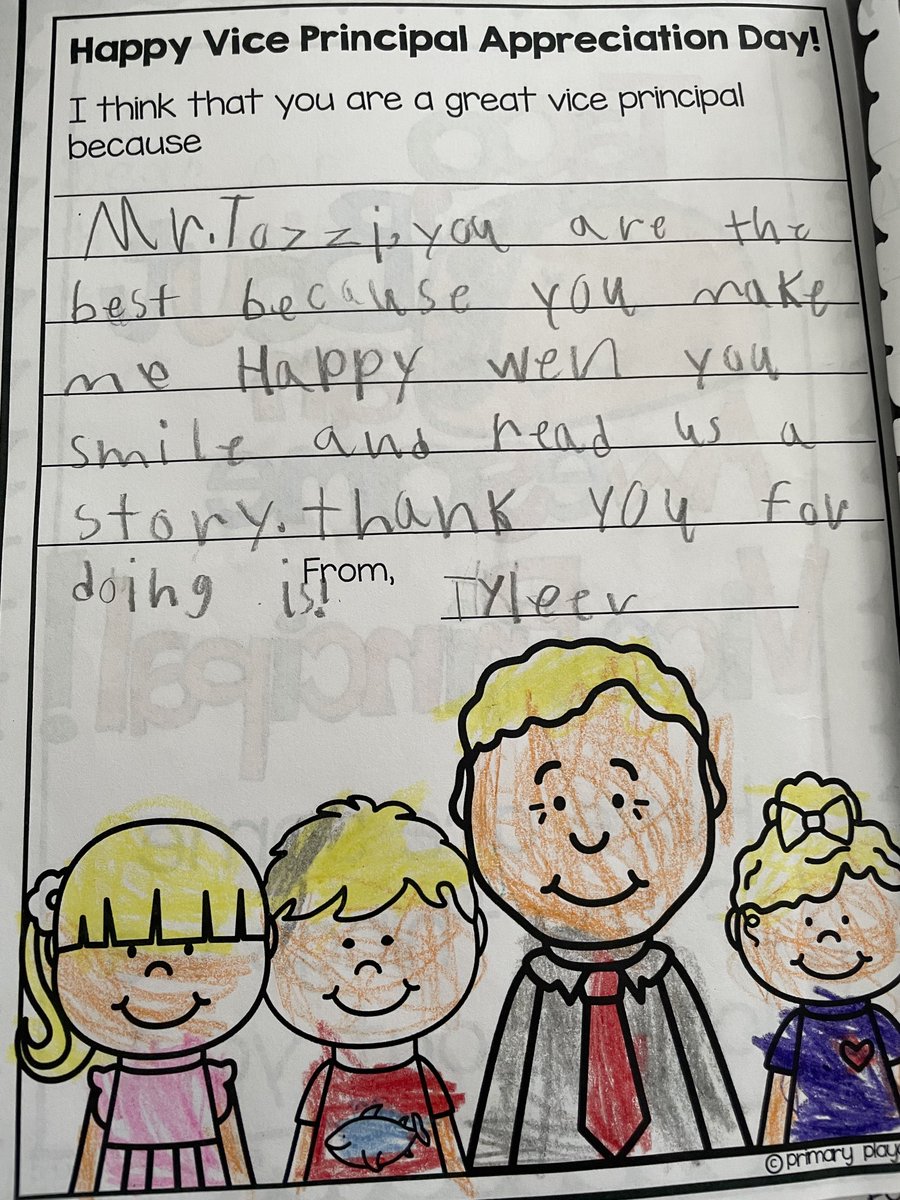 Happy Vice Principal Appreciation Day!
I think that you are a great vice principal
because
Mr. Tozzi, you are the
best because you make
me Happy wen you
smile and read us a
story. thank you for
doing is!
From, Tyleer
© primary playg